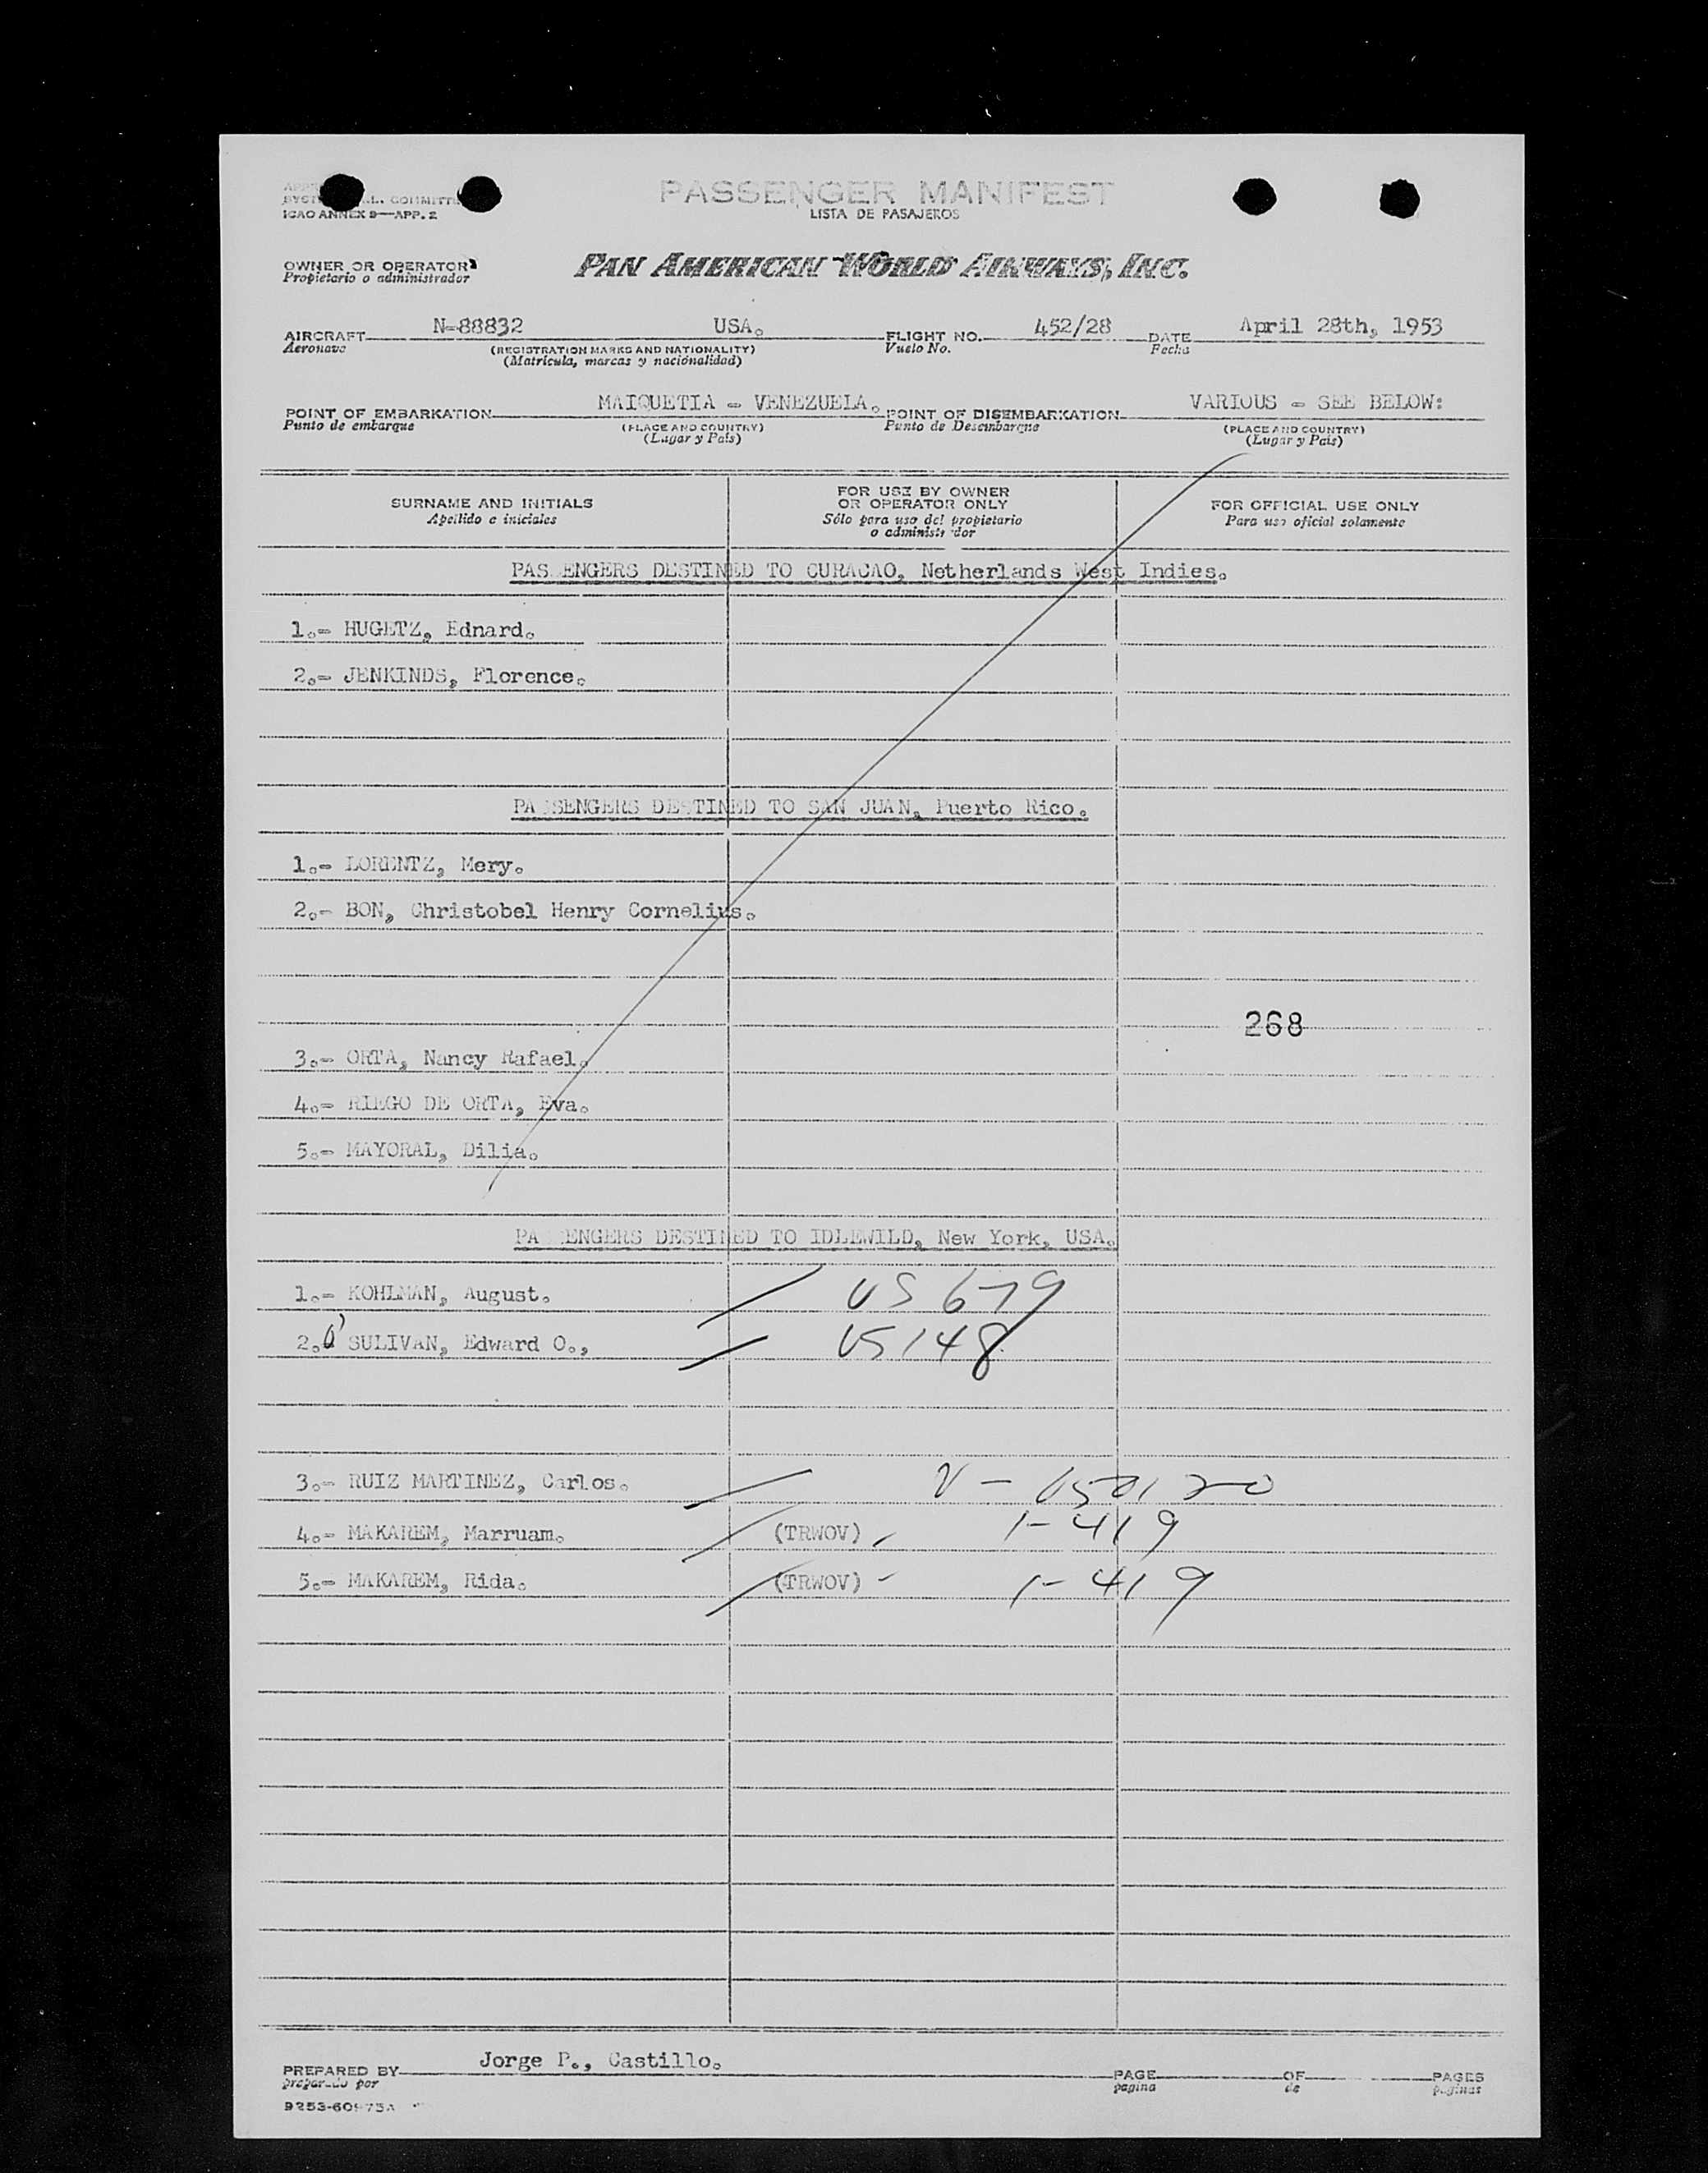 ICAO ANNEX 9—APP. 2
PASSENGER MANIFEST
LISTA DE PASAJEROS
OWNER OR OPERATOR
Propietario o administrador
PAN AMERICAN WORLD AIRWAYS, INC.
AIRCRAFT N-88832 USA. FLIGHT NO. 452/28 DATE April 28th, 1953
Aeronave (REGISTRATION MARKS AND NATIONALITY) Vuelo No. Fecha
(Matrícula, marcas y nacionalidad)
POINT OF EMBARKATION MAIQUETIA - VENEZUELA. POINT OF DISEMBARKATION VARIOUS - SEE BELOW:
Punto de embarque (PLACE AND COUNTRY) Punto de Desembarque (PLACE AND COUNTRY)
(Lugar y País) (Lugar y País)
SURNAME AND INITIALS
Apellido e iniciales
FOR USE BY OWNER
OR OPERATOR ONLY
Sólo para uso del propietario
o administrador
FOR OFFICIAL USE ONLY
Para uso oficial solamente
PASSENGERS DESTINED TO CURACAO, Netherlands West Indies.
1.- HUGETZ, Ednard.
2.- JENKINDS, Florence.
PASSENGERS DESTINED TO SAN JUAN, Puerto Rico.
1.- LORENTZ, Mery.
2.- BON, Christobel Henry Cornelius.
268
3.- ORTA, Nancy Rafael.
4.- RIEGO DE ORTA, Eva.
5.- MAYORAL, Dilia.
PASSENGERS DESTINED TO IDLEWILD, New York, USA.
1.- KOHLMAN, August. US 679
2. O' SULIVAN, Edward O., US 148
3.- RUIZ MARTINEZ, Carlos. V -
4.- MAKAREM, Marruam. (TRWOV) 1-419
5.- MAKAREM, Rida. (TRWOV) - 1-419
PREPARED BY Jorge P., Castillo. PAGE OF PAGES
preparado por pagina de paginas